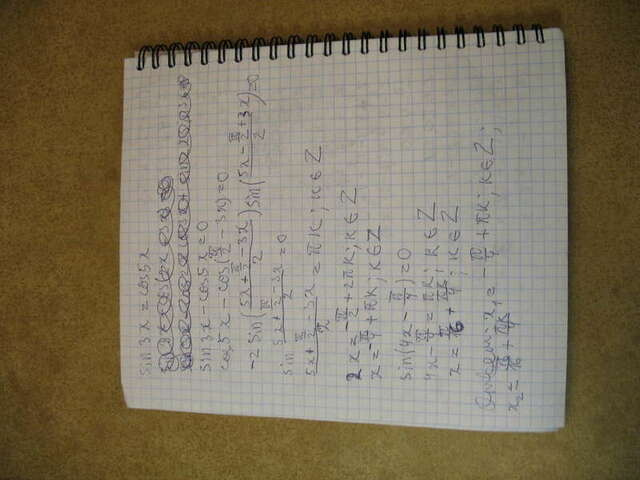 sin3x = cos5x
sin3x - cos5x = 0
cos5x - cos(π/2 - 3x) = 0
-2 sin((5x + π/2 - 3x)/2) sin((5x - π/2 + 3x)/2) = 0
sin (5x + π/2 - 3x)/2 = 0
(5x + π/2 - 3x)/2 = πk; k∈Z
2x = -π/2 + 2πk; k∈Z
x = -π/4 + πk; k∈Z
sin(4x - π/4) = 0
4x - π/4 = πk; k∈Z
x = π/16 + πk/4; k∈Z
Ответ: x₁ = -π/4 + πk; k∈Z;
x₂ = π/16 + πk/4